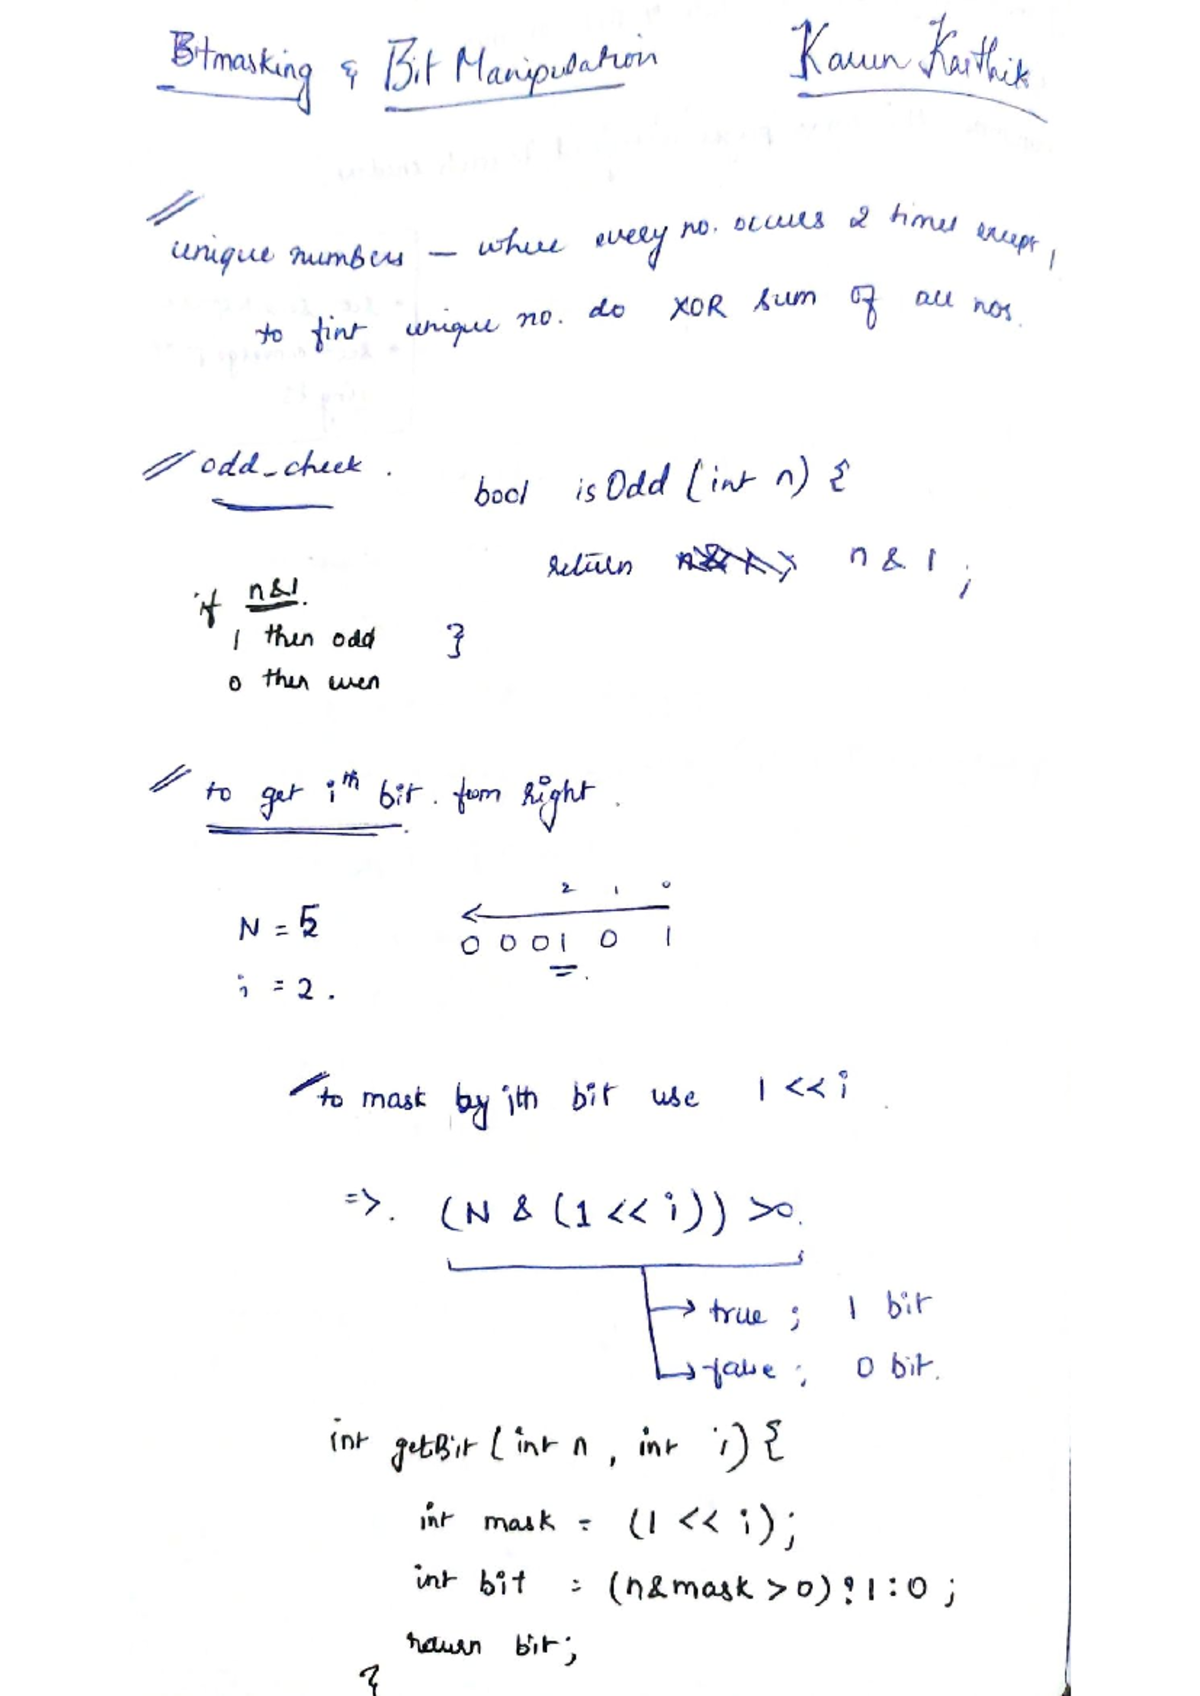 Bitmasking & Bit Manipulation Karun Karthik
unique numbers - where every no. occurs 2 times except 1
to fint unique no. do XOR sum of all nos.
odd_check.
bool isOdd (int n) {
return n & 1 ;
}
if n&1.
1 then odd
0 then even
to get ith bit. from right.
2 1 0
N = 5
0 0 0 1 0 1
i = 2.
to mask by ith bit use 1 << i
=>. (N & (1 << i)) >0.
true ; 1 bit
false ; 0 bit.
int getBit (int n , int i) {
int mask = (1 << i);
int bit = (n&mask > 0) ? 1 : 0 ;
return bit;
}